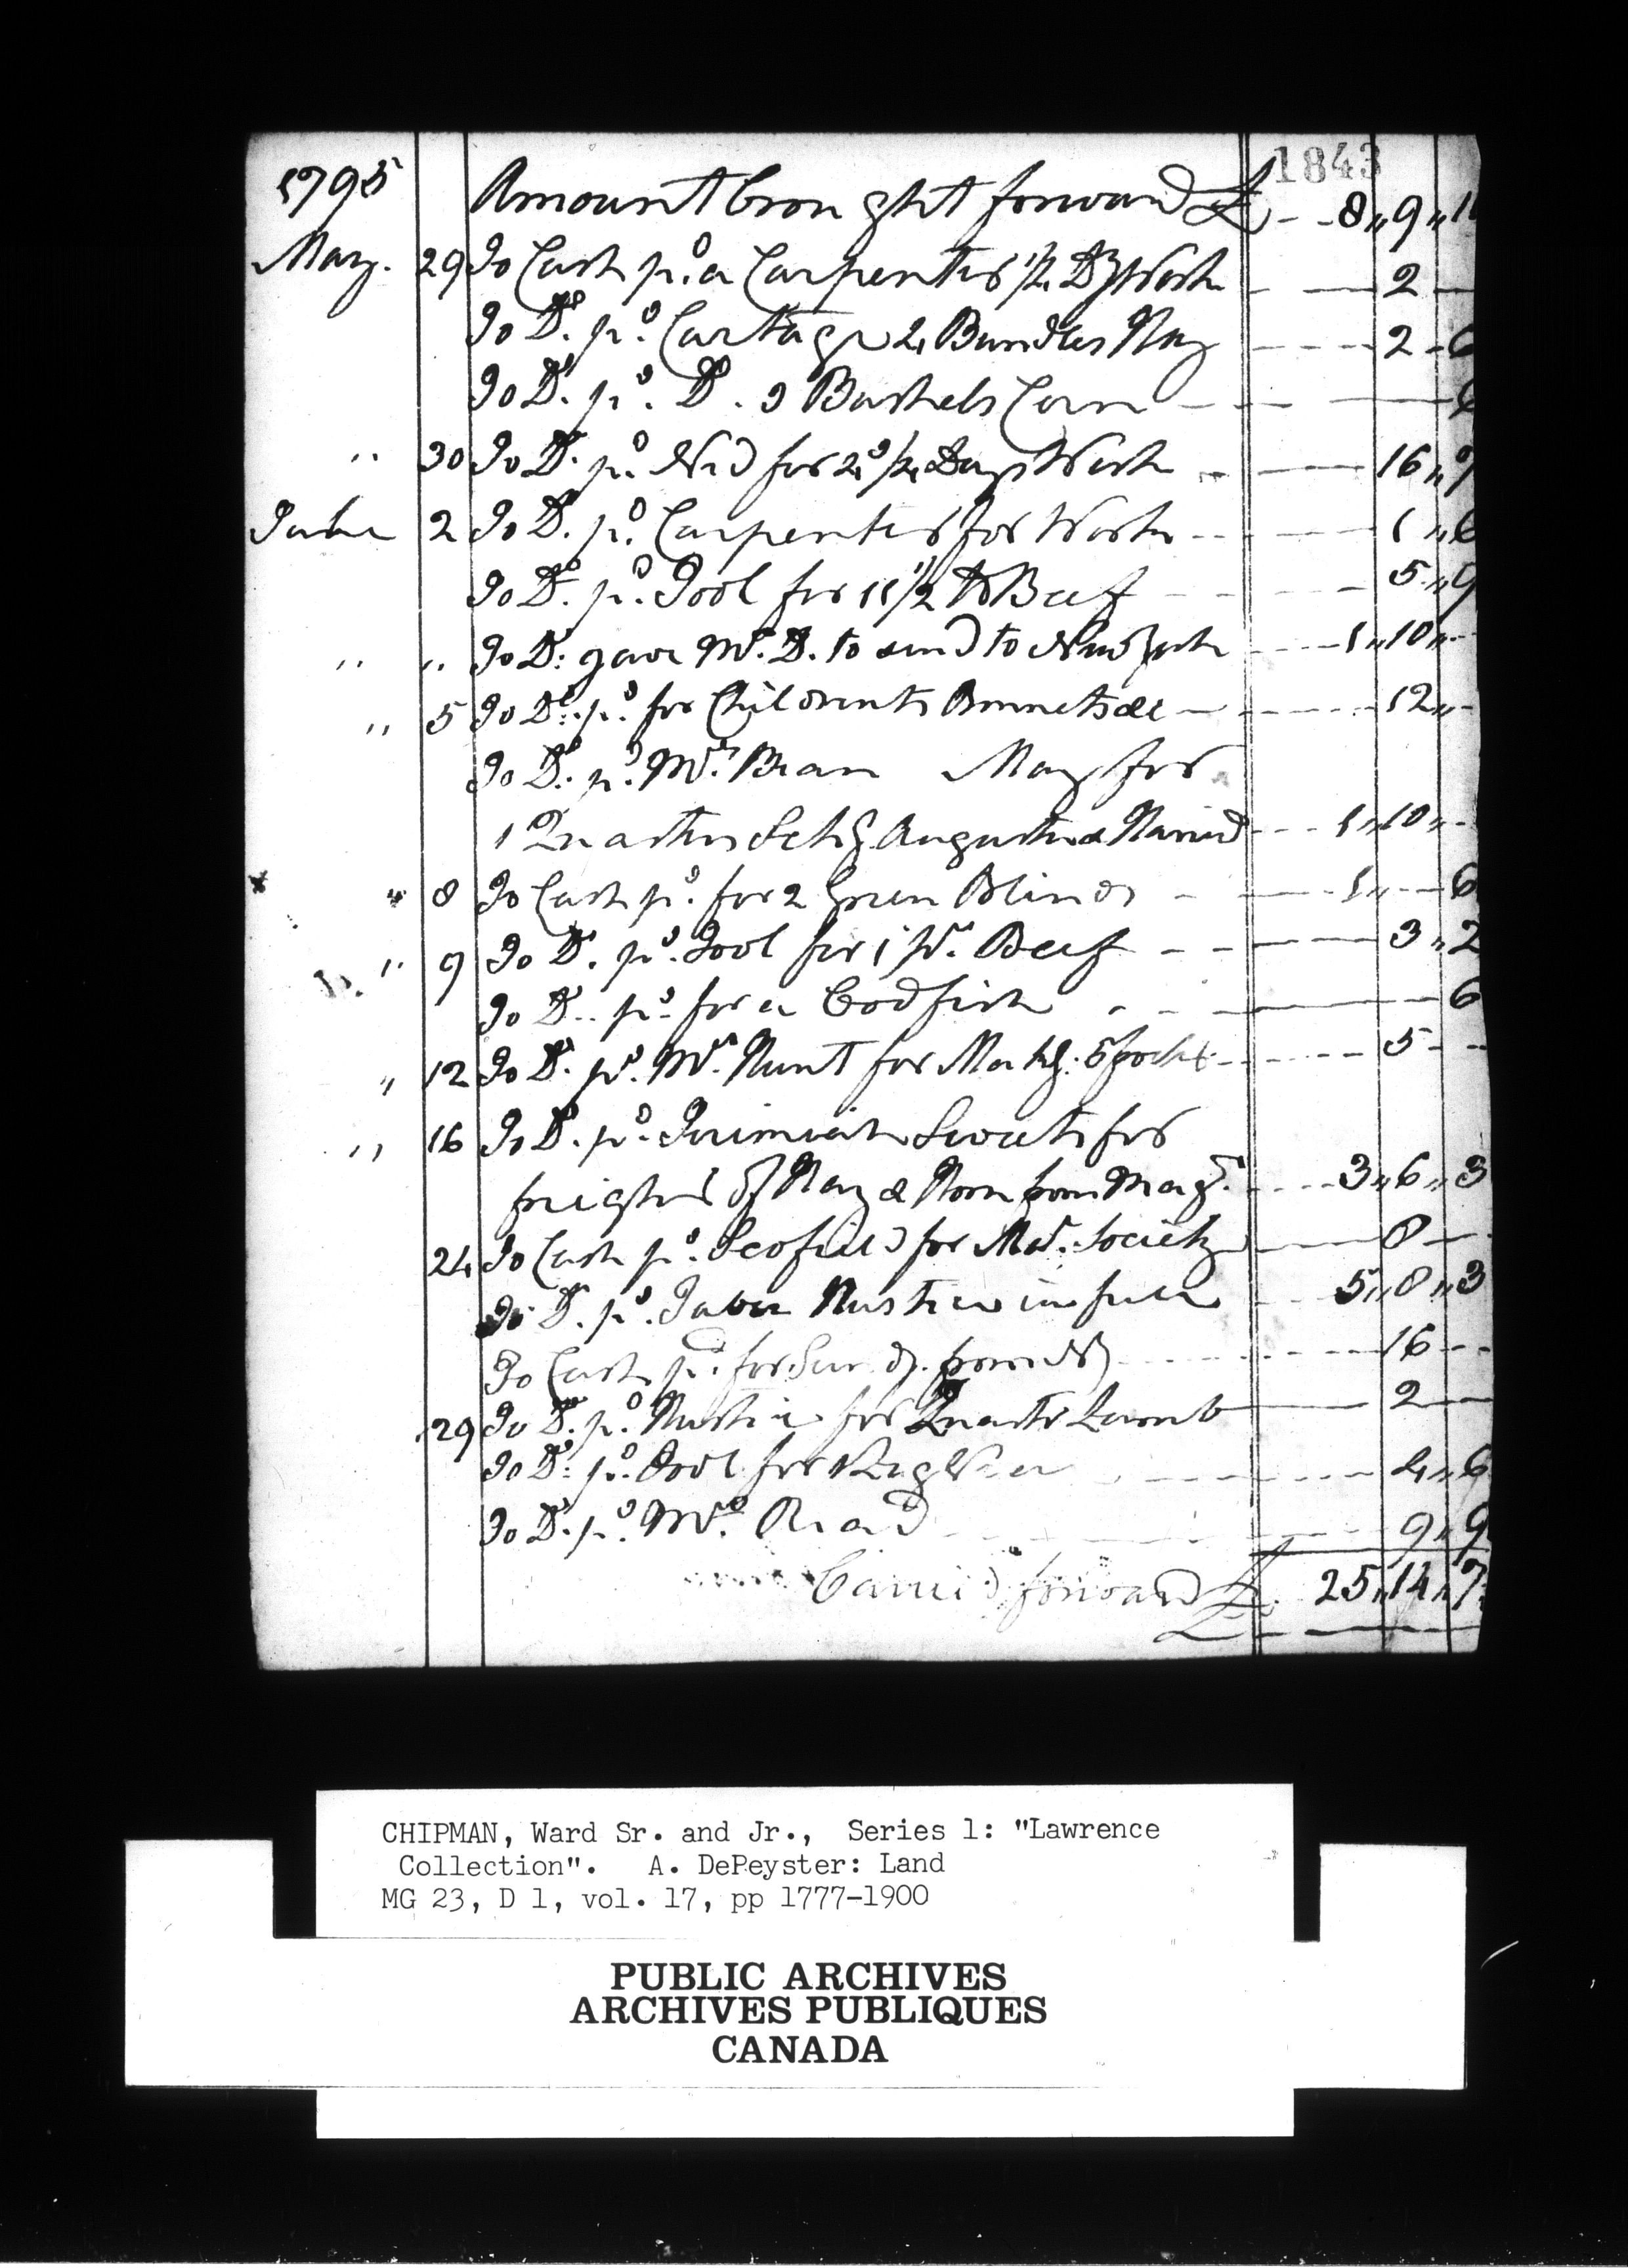 1843
1795 Amount brought forward £ 8 " 9 " 11
May. 29 To Cash pd. a Carpenter 1/2 Dy Work 2
To Do. pd. Cartage 2 Bundles Hay 2 - 6
To Do. pd. Do. 9 Bushels Corn 6
" 30 To Do. pd. Ned for 2 1/2 Days Work 16 " 9
June 2 To Do. pd. Carpenter for Work 1 " 6
To Do. pd. Pool for 11 1/2 lb Beef 5 " 9
" " To Do. gave Mr. D. to send to New York 1 " 10 "
" 5 To Do. pd. for Childrents Bonnets &c 12 "
To Do. pd. Mr. Bean May for
1 Quarters Schg Augusta & 1 " 10 "
" 8 To Cash pd. for 2 Green Blinds 1 " 6
" 9 To Do. pd. Pool for Beef 3 " 2
To Do. pd. for a Codfish 6
" 12 To Do. pd. Mr. Hunt for 5
" 16 To Do. pd. Jerimiah for
freight of Hay & from 3 " 6 " 3
24 To Cash pd. Scofield for Society 8
To Do. pd. in full 5 " 8 " 3
To Cash pd. for 16
29 To Do. pd. for Quarter Lamb 2
To Do. pd. Pool for Leg Veal 4 " 6
To Do. pd. Mr. Read 9 " 9
Carried forward £ 25 " 14 " 7
CHIPMAN, Ward Sr. and Jr., Series 1: "Lawrence
Collection". A. DePeyster: Land
MG 23, D 1, vol. 17, pp 1777-1900
PUBLIC ARCHIVES
ARCHIVES PUBLIQUES
CANADA